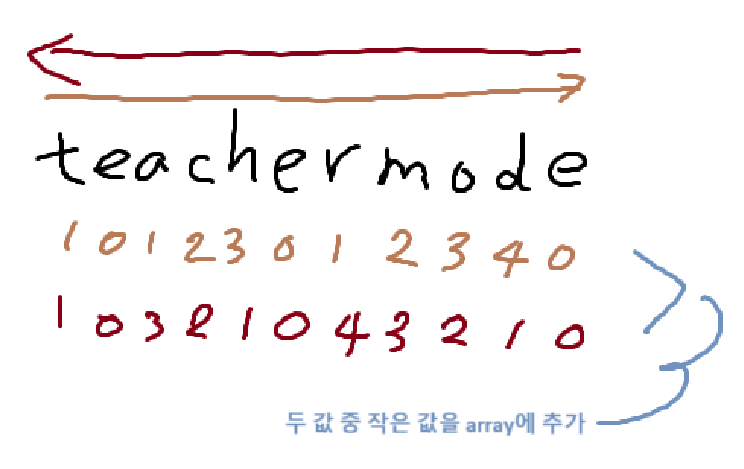 teachermode
1 0 1 2 3 0 1 2 3 4 0
1 0 3 2 1 0 4 3 2 1 0
두 값 중 작은 값을 array에 추가